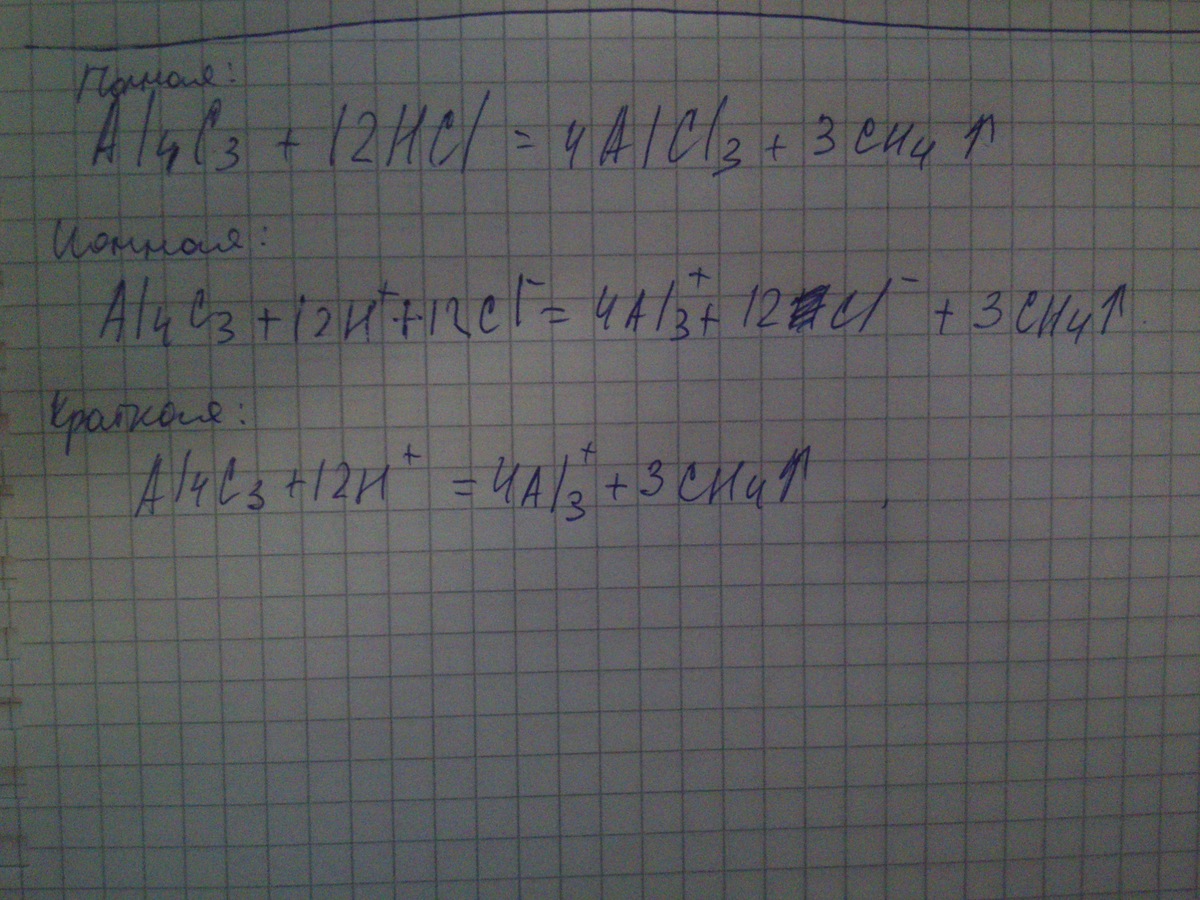 Полная:
Al₄C₃ + 12HCl = 4AlCl₃ + 3CH₄↑
Ионная:
Al₄C₃ + 12H⁺ + 12Cl⁻ = 4Al₃⁺ + 12Cl⁻ + 3CH₄↑
Краткая:
Al₄C₃ + 12H⁺ = 4Al₃⁺ + 3CH₄↑